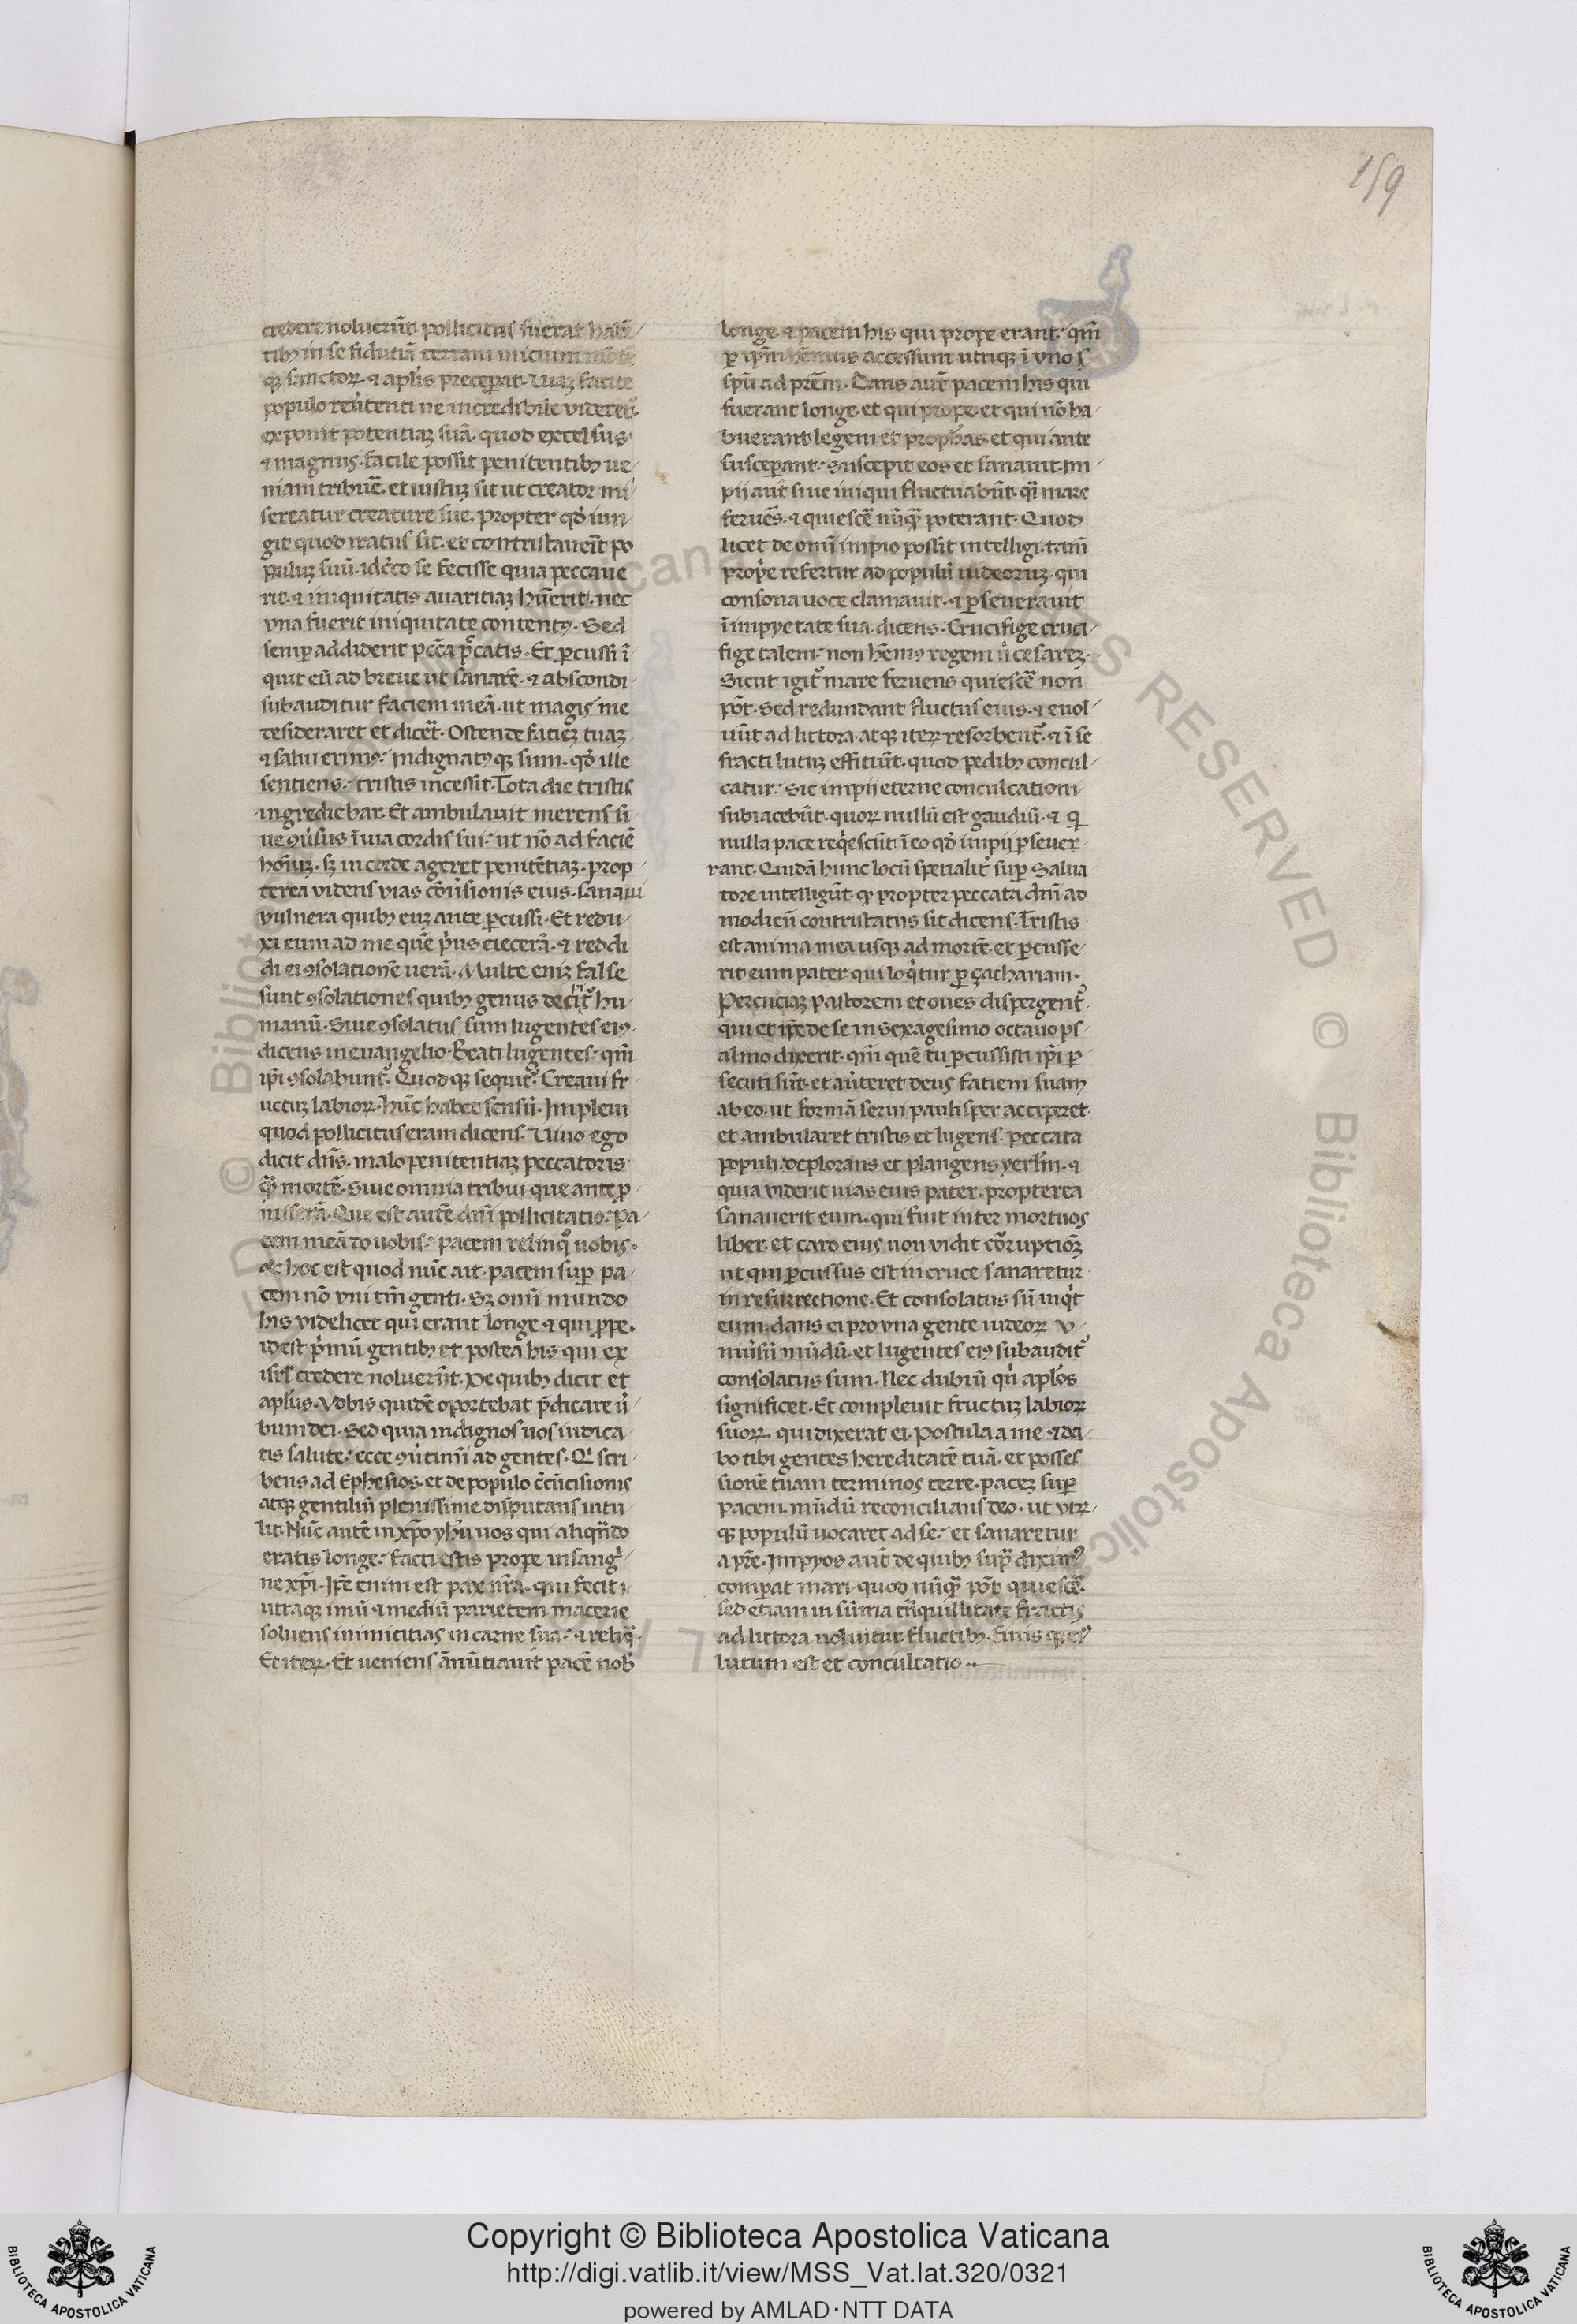 159
credere noluerūt. pollicitus fuerat habē/
tibꝫ in se fidutiā terram
qꝫ sanctoꝝ. ⁊ apl'is preceperat. Viaꝫ facite
populo reu̾tenti ne incredibile videret᷑.
exponit potentiaꝫ suā. quod excelsus
⁊ magnus. facile possit penitentibꝫ ue/
niam tribuē. et iustuꝫ sit ut creator mi/
sereatur creature sue. propter qđ iun/
git quod iratus sit. et contristauerit po
puluꝫ suū. idc̾co se fecisse quia peccaue
rit. ⁊ iniquitatis auaritiaꝫ hūerit. nec
vna fuerit iniquitate contentꝰ. Sed
semp̱ addiderit pccā pccatis. Et p̱cussi ī
quit eū ad breue ut sanarē. ⁊ abscondi/
subauditur faciem meā. ut magis me
desideraret et dicēt. Ostende fatieꝫ tuaꝫ
⁊ salui erimꝰ: indignatꝰ qꝫ sum. qđ ille
sentiens: tristis incessit. Tota die tristis
ingrediebar. Et ambulauit merens si/
ue ꝯu̾sus ī uia cordis sui: ut nō ad faciē
hoīuꝫ. sꝫ in corde ageret penitētiaꝫ. prop/
terea videns vias cōu̾sionis eius. sanaui
vulnera quibꝫ euꝫ ante p̱cussi. Et redu/
xi eum ad me quē p̾us eiecerā. ⁊ reddi
di ei ꝯsolationē uerā. Multe eniꝫ false
sunt ꝯsolationes quibꝫ genus decipit᷑ hu/
manū. Siue ꝯsolatus sum lugentes eiꝰ.
dicens in euangelio. Beati lugentes: qm̄
ip̄i ꝯsolabunt᷑. Quod qꝫ sequit᷑. Creaui fr
uctuꝫ labioꝝ. hūc habet sensū. Impleui
quod pollicitus eram dicens. Viuo ego
dicit dn̄s. malo penitentiaꝫ peccatoris
qꝫ̄ mortē. Siue omnia tribui que ante ꝓ
miserā. Que est autē dn̄i pollicitatio: Pa/
cem meā do uobis: pacem relinqͦ uobis.
⁊ hoc est quod nūc ait. pacem sup̱ pa/
cem nō vni tm̄ genti. Sꝫ omī mundo
his videlicet qui erant longe ⁊ qui ꝓpe.
id est p̾mū gentibꝫ et postea his qui ex
isrl' credere noluerūt. De quibꝫ dicit et
apl'us. Vobis quidē oportebat p̄dicare u̾
bum dei. Sed quia indignos uos iudica/
tis salute: ecce ꝯu̾timur ad gentes. Qͥ scri/
bens ad Ephesios. et de populo c̾cūcisionis
atqꝫ gentiliū plenissime disputans intu/
lit. Nūc autē in xp̄o yhu̅ uos qui aliqn̄do
eratis longe: facti estis prope in sangͥ/
ne xp̄i. Ip̄e enim est pax nr̄a. qui fecit
utraqꝫ unū ⁊ mediū parietem macerie
soluens inimicitias in carne sua: ⁊ reliq̄.
Et iteꝝ. Et ueniens ānūtiauit pacē nob̾
longe. ⁊ pacem his qui prope erant: qm̄
p̱ ip̄m hēmus accessum utriqꝫ ī vno
spū ad prēm. Dans aut̄ pacem his qui
fuerant longe. et qui prope. et qui nō ha/
buerant legem et prophas. et qui ante
susceperant: Suscepit eos et sanauit. Im/
pij aut̄ siue iniqui fluctuabūt. qͥ mare
feruēs. ⁊ quiescē nūqꝫ̄ poterant. Quod
licet de omī impio possit intelligi. tam̄
propͥe refertur ad populū iudeoruꝫ. qui
consona uoce clamauit. ⁊ p̱seuerauit
ī impyetate sua. dicens. Crucifige cruci/
fige talem: non hēmꝰ regem n̾ cesareꝫ.
Sicut igit᷑ mare feruens quiescē non
pōt. Sed redundant fluctus eius. ⁊ euol/
uūt ad littora. atqꝫ iteꝝ resorbent᷑. ⁊ ī se
fracti lutuꝫ effitiūt. quod pedibꝫ concul/
catur: Sic impij eterne conculcationi
subiacebūt. quoꝝ nullū est gaudiū. ⁊ qͥ
nulla pace reqͥescūt ī eo qđ impij p̱seuer
rant. Quidā hunc locū spetialit̾ sup̱ Salua
tore intelligūt. qꝫ propter peccata dn̄i ad
modicū contristatus sit dicens. Tristis
est anima mea usqꝫ ad mortē. et p̱cusse/
rit eum pater qui loqͥtur p̱ çachariam.
Percutiaꝫ pastorem et oues dispergent᷑.
qui et ip̄e de se in sexagesimo octauo ps/
almo dixerit. qm̄ quē tu p̱cussisti ip̄i p̱
secuti sūt. et au̾teret deus fatiem suam
ab eo. ut formā serui paulisper acciperet.
et ambularet tristis et lugens. peccata
populi deplorans et plangens yerlm̄. ⁊
quia viderit uias eius pater. propterea
sanauerit eum. qui fuit inter mortuos
liber. et caro eius non vidit cōruptioꝫ
ut qui p̱cussus est in cruce sanaretur
in resurrectione. Et consolatus sū inqͥt
eum. dans ei pro vna gente iudeoꝝ v/
niu̾sū mūdū. et lugentes eiꝰ subaudit᷑
consolatus sum. Nec dubiū qn̾ apl'os
significet. Et compleuit fructuꝫ labioꝝ
suoꝝ. qui dixerat ei. Postula a me. ⁊ da/
bo tibi gentes hereditatē tuā. et posses
sionē tuam terminos terre. paceꝫ sup̱
pacem. mūdū reconcilians deo. ut vtꝝ/
qꝫ populū uocaret ad se: et sanaretur
a pr̄e. Impyos aut̄ de quibꝫ sup̱ diximꝰ
comparat mari. quod nūqꝫ̄ pōt quiescē.
sed etiam in sūma tn̄quillitate fractis
ad littora uoluitur fluctibꝫ. finis qꝫ eiꝰ
lutum est et conculcatio..
Copyright © Biblioteca Apostolica Vaticana
http://digi.vatlib.it/view/MSS_Vat.lat.320/0321
powered by AMLAD·NTT DATA
BIBLIOTECA APOSTOLICA VATICANA
BIBLIOTECA APOSTOLICA VATICANA